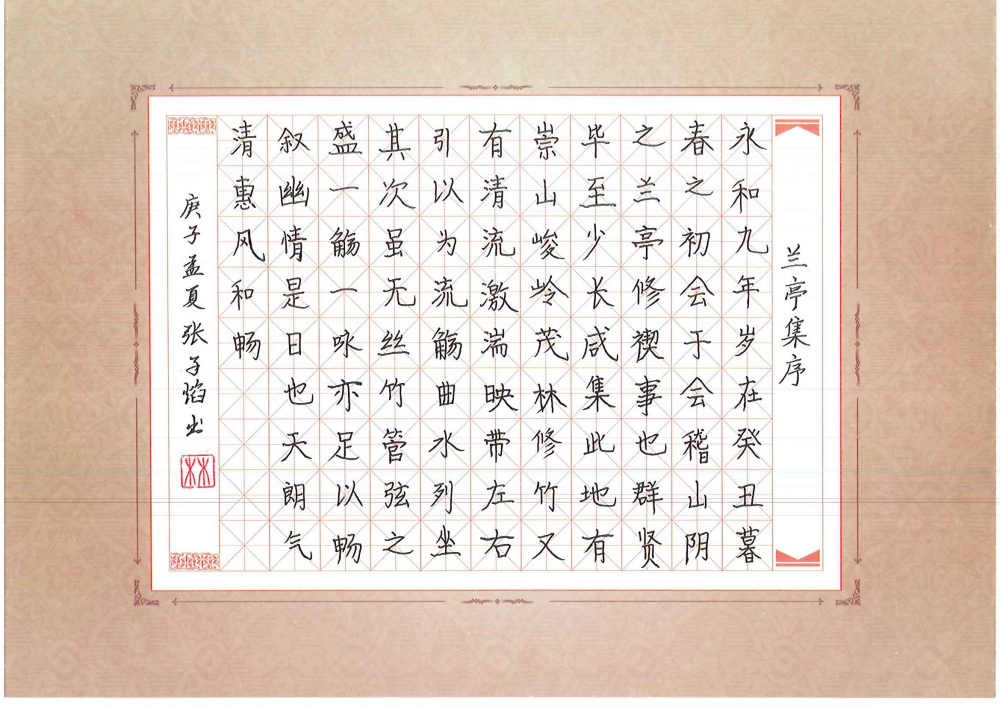 兰亭集序
永和九年岁在癸丑暮
春之初会于会稽山阴
之兰亭修禊事也群贤
毕至少长咸集此地有
崇山峻岭茂林修竹又
有清流激湍映带左右
引以为流觞曲水列坐
其次虽无丝竹管弦之
盛一觞一咏亦足以畅
叙幽情是日也天朗气
清惠风和畅
庚子孟夏张子焰书
林